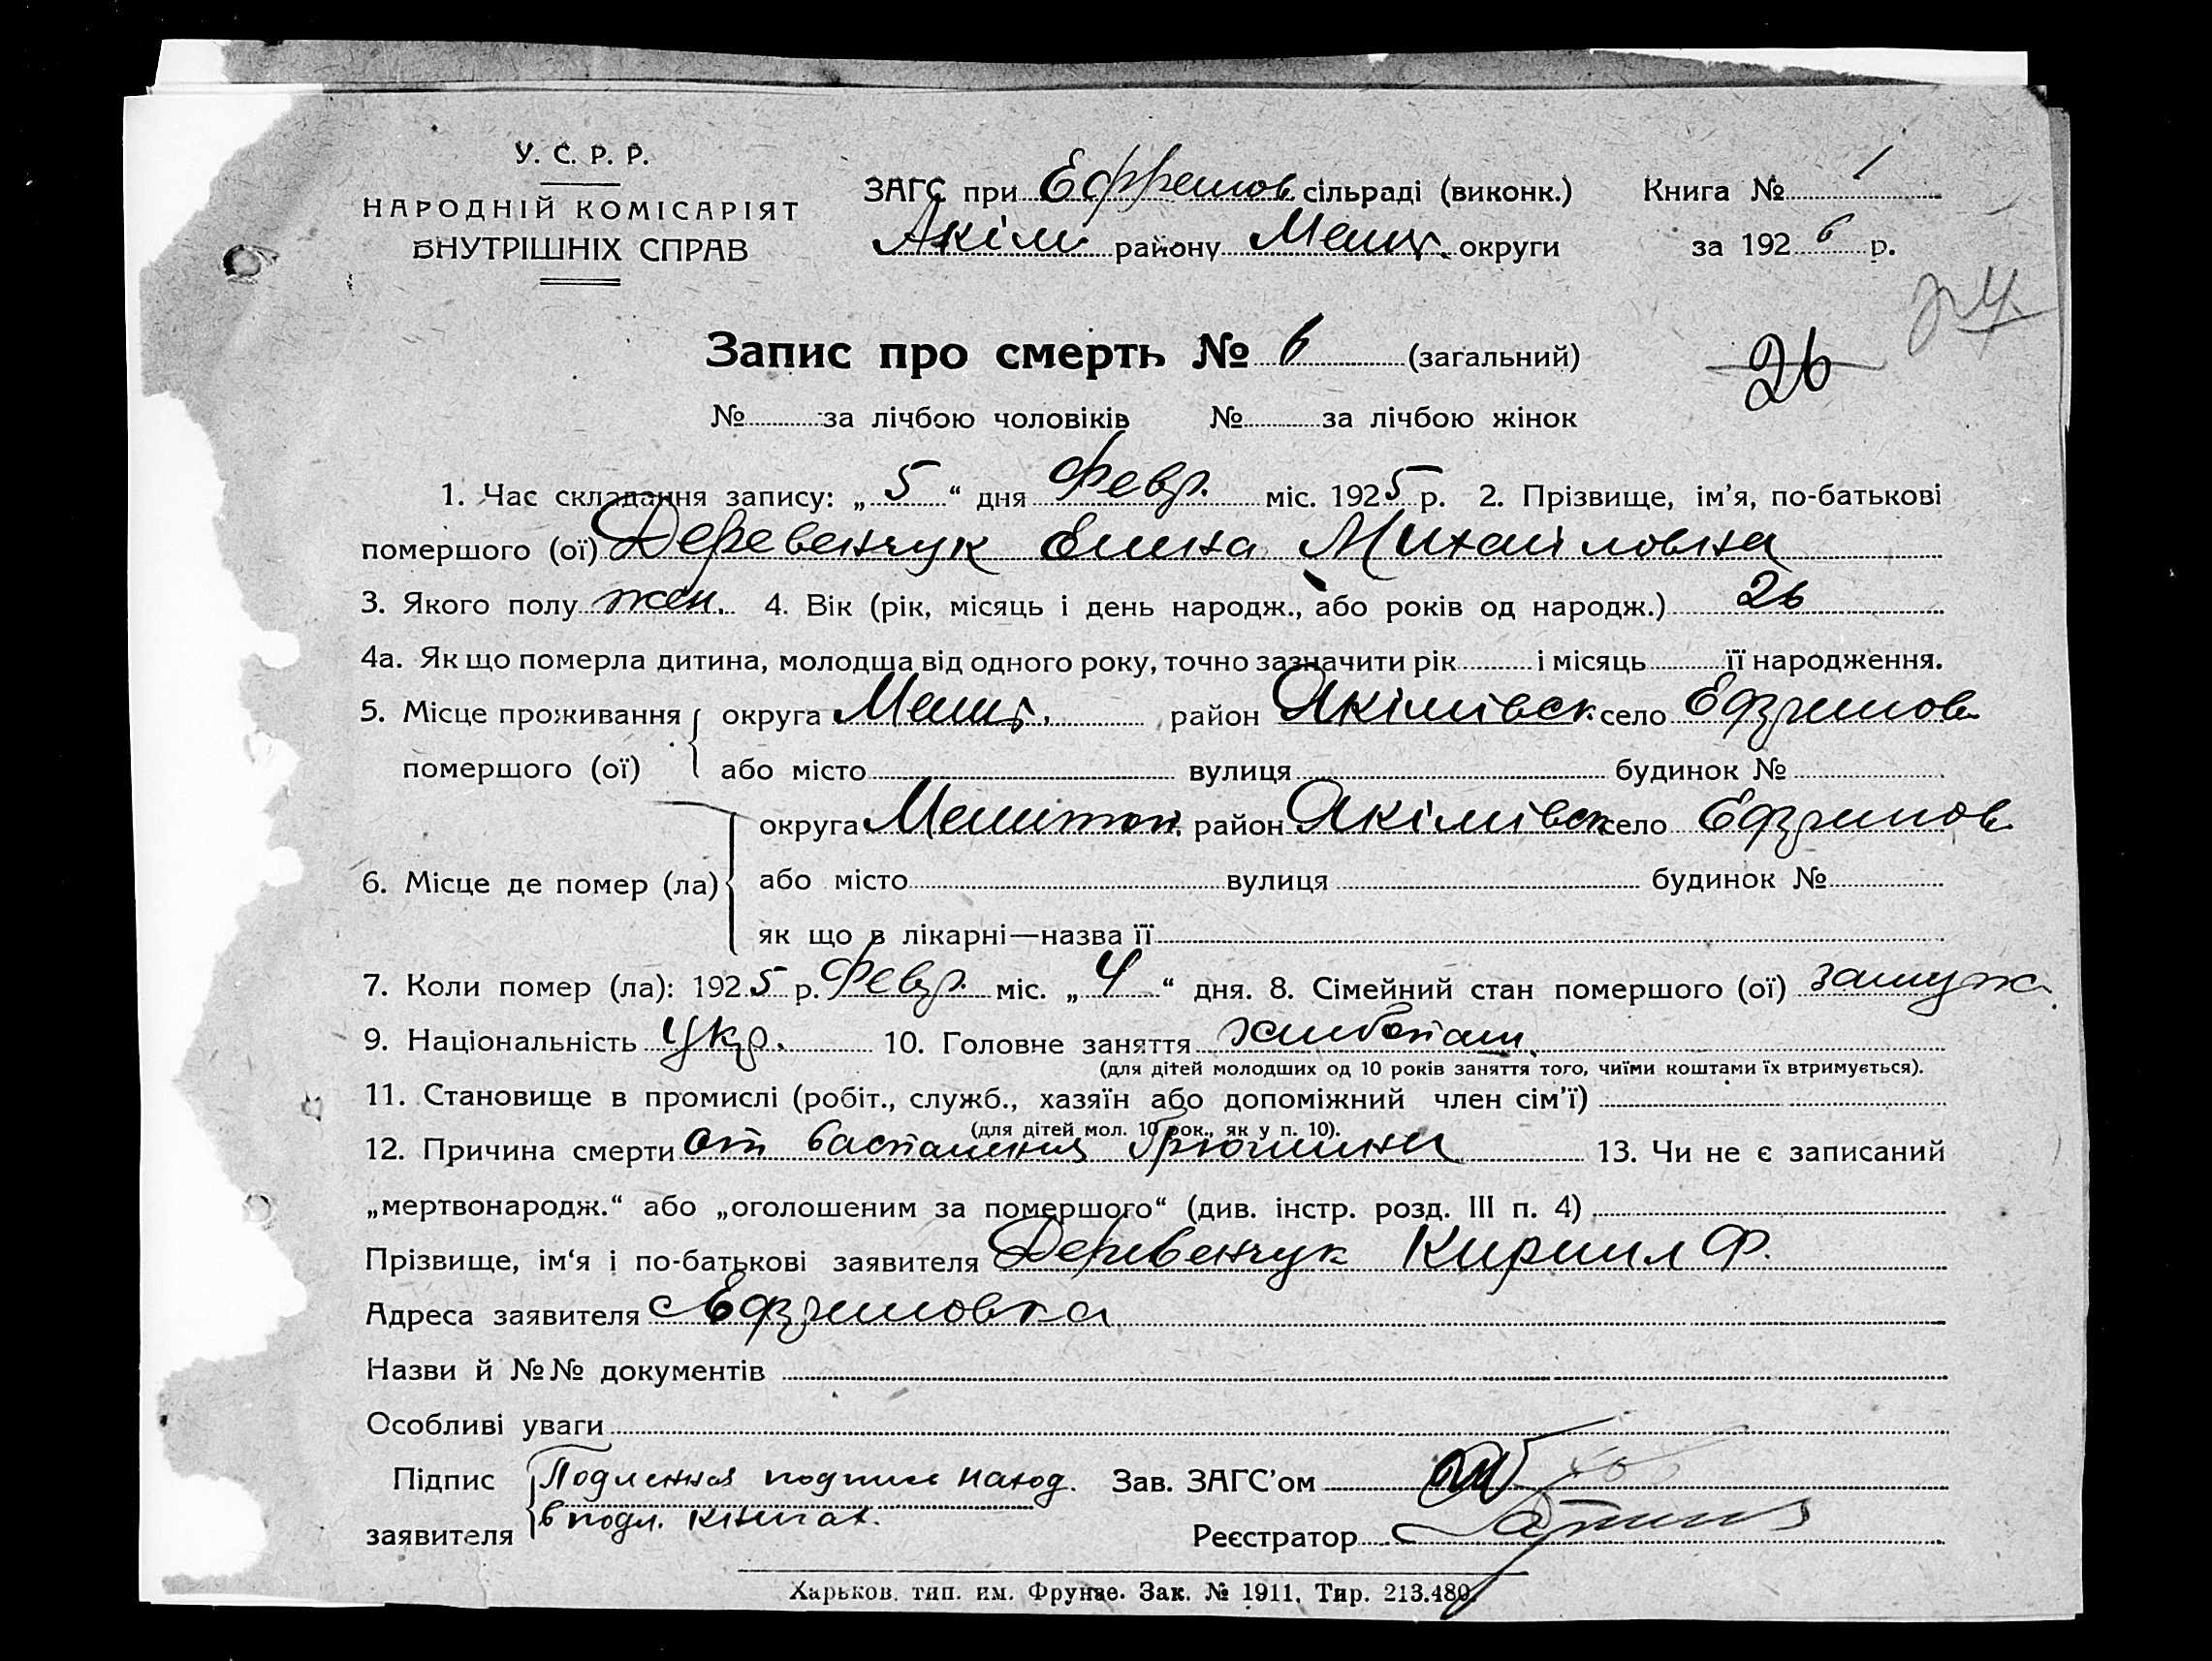 У. С. Р. Р.
НАРОДНІЙ КОМІСАРІЯТ
ВНУТРІШНІХ СПРАВ
ЗАГС при Ефремов. сільраді (виконк.) Книга № 1
Акім. району Меліт. округи за 1926 р.
24
Запис про смерть № 6 (загальний)
26
№ за лічбою чоловіків № за лічбою жінок
1. Час складання запису: „5“ дня Февр. міс. 1925 р. 2. Прізвище, ім’я, по-батькові
помершого (ої) Деревенчук Елена Михайловна
3. Якого полу жен. 4. Вік (рік, місяць і день народж., або років од народж.) 26
4а. Як що померла дитина, молодша від одного року, точно зазначити рік і місяць її народження.
5. Місце проживання округа Меліт. район Якімівск село Ефремов
померщого (ої) або місто вулиця будинок №
округа Мелитоп. район Якімівск село Ефремов
6. Місце де помер (ла) або місто вулиця будинок №
як що в лікарні—назва її
7. Коли помер (ла): 1925 р. Февр. міс. „4“ дня. 8. Сімейний стан помершого (ої) замуж.
9. Національність Укр. 10. Головне заняття хлибопаш.
(для дітей молодших од 10 років заняття того, чиїми коштами їх втримується).
11. Становище в промислі (робіт., служб., хазяїн або допоміжний член сім’ї)
(для дітей мол. 10 рок., як у п. 10).
12. Причина смерти от васпаления брюшины 13. Чи не є записаний
„мертвонародж.“ або „оголошеним за помершого“ (див. інстр. розд. III п. 4)
Прізвище, ім‘я і по-батькові заявителя Деревенчук Кирилл Ф.
Адреса заявителя с Ефремовка
Назви й №№ документів
Особливі уваги
Підпис Подленная подпись наход. Зав. ЗАГС’ом
в подл. книгах.
заявителя Реєстратор
Харьков. тип. им. Фрунзе. Зак. № 1911. Тир. 213.480.